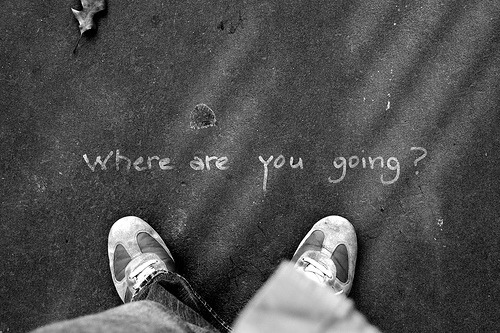 Where are you going?